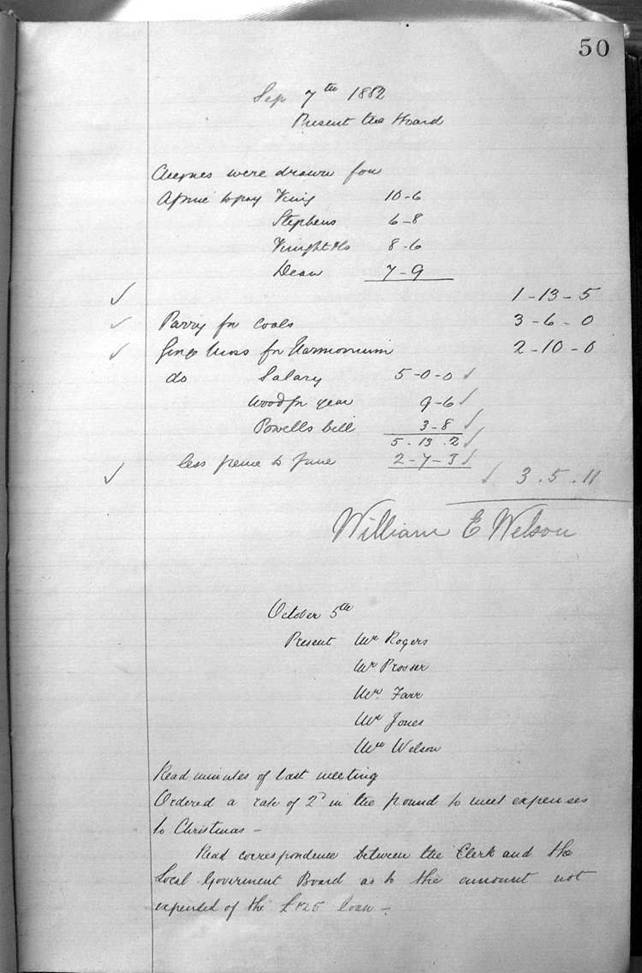 50
Sep 7th 1882
Present the Board
Cheques were drawn for
to pay King 10-6
Stephens 6-8
8-6
Dean 7-9
1-13-5
Parry for coals 3-6-0
for Harmonium 2-10-0
do Salary 5-0-0
Wood for year 9-6
Powells bill 3-8
5.13.2
less pence to June 2-7-3
3.5.11
William E Welson
October 5th
Present Mr Rogers
Mr Prosser
Mr Farr
Mr Jones
Mr Welson
Read minutes of last meeting
Ordered a rate of 2d in the pound to meet expenses
to Christmas -
Read correspondence between the Clerk and the
Local Government Board as to the amount not
expended of the £125 loan -